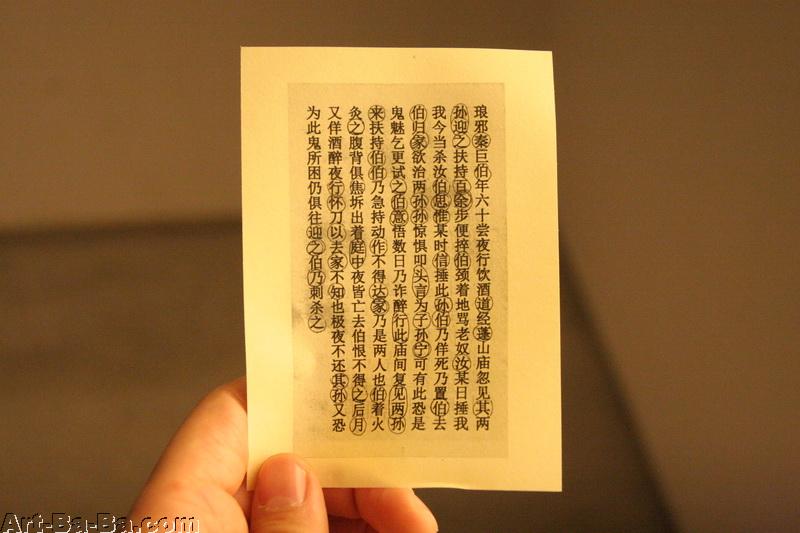 琅邪秦巨伯年六十尝夜行饮酒道经蓬山庙忽见其两
孙迎之扶持百余步便捽伯颈着地骂老奴汝某日捶我
我今当杀汝伯思惟某时信捶此孙伯乃佯死乃置伯去
伯归家欲治两孙孙惊惧叩头言为子孙宁可有此恐是
鬼魅乞更试之伯意悟数日乃诈醉行此庙间复见两孙
来扶持伯伯乃急持动作不得达家乃是两人也伯着火
灸之腹背俱焦坼出着庭中夜皆亡去伯恨不得之后月
又佯酒醉夜行怀刀以去家不知也极夜不还其孙又恐
为此鬼所困仍俱往迎之伯乃刺杀之
Art-Ba-Ba.com